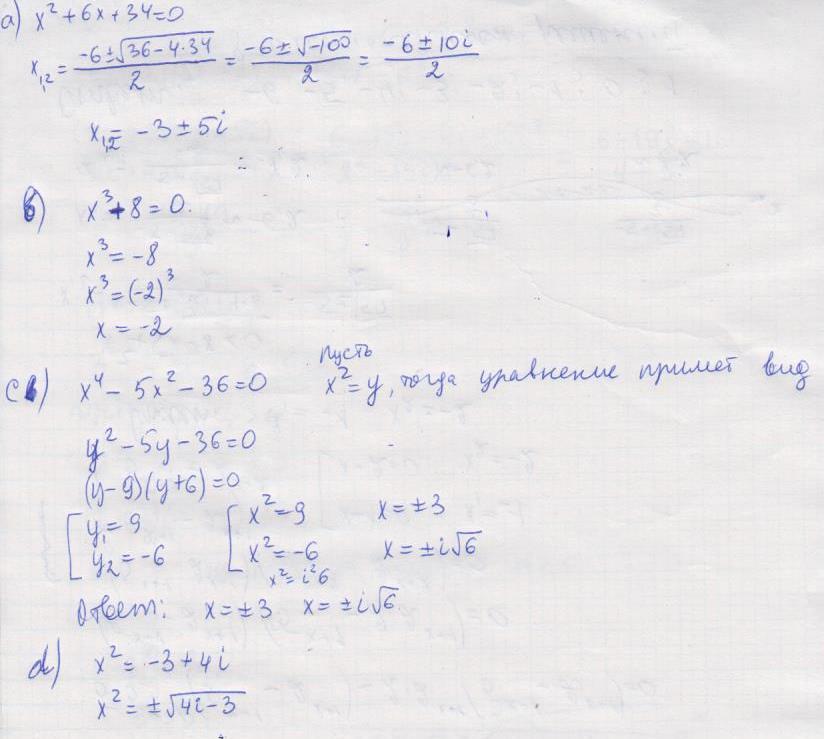 a) x² + 6x + 34 = 0
x₁,₂ = (-6 ± √(36 - 4·34))/2 = (-6 ± √(-100))/2 = (-6 ± 10i)/2
x₁,₂ = -3 ± 5i
b) x³ + 8 = 0.
x³ = -8
x³ = (-2)³
x = -2
c) x⁴ - 5x² - 36 = 0 Пусть x² = y, тогда уравнение примет вид
y² - 5y - 36 = 0
(y - 9)(y + 6) = 0
[ y₁ = 9 [ x² = 9 x = ± 3
y₂ = -6 x² = -6 x = ± i√6
x² = i²6
Ответ: x = ± 3 x = ± i√6
d) x² = -3 + 4i
x² = ± √(4i - 3)